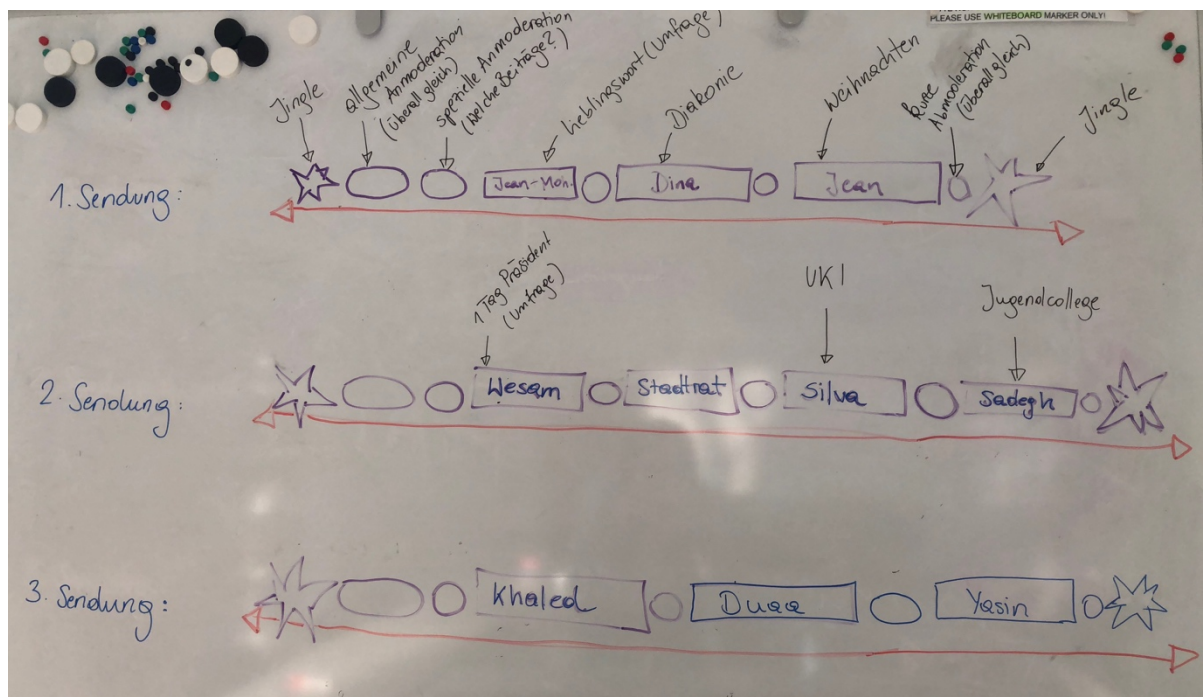 PLEASE USE WHITEBOARD MARKER ONLY!
Jingle
allgemeine
Anmoderation
(überall gleich)
spezielle Anmoderation
(Welche Beiträge?)
Lieblingswort (Umfrage)
Diakonie
Weihnachten
kurze
Abmoderation
(überall gleich)
Jingle
1. Sendung:
Jean-Mon-
Dina
Jean
1 Tag Präsident
(Umfrage)
UKI
Jugendcollege
2. Sendung:
Wesam
Stadtrat
Silva
Sadegh
3. Sendung:
Khaled
Duaa
Yasin